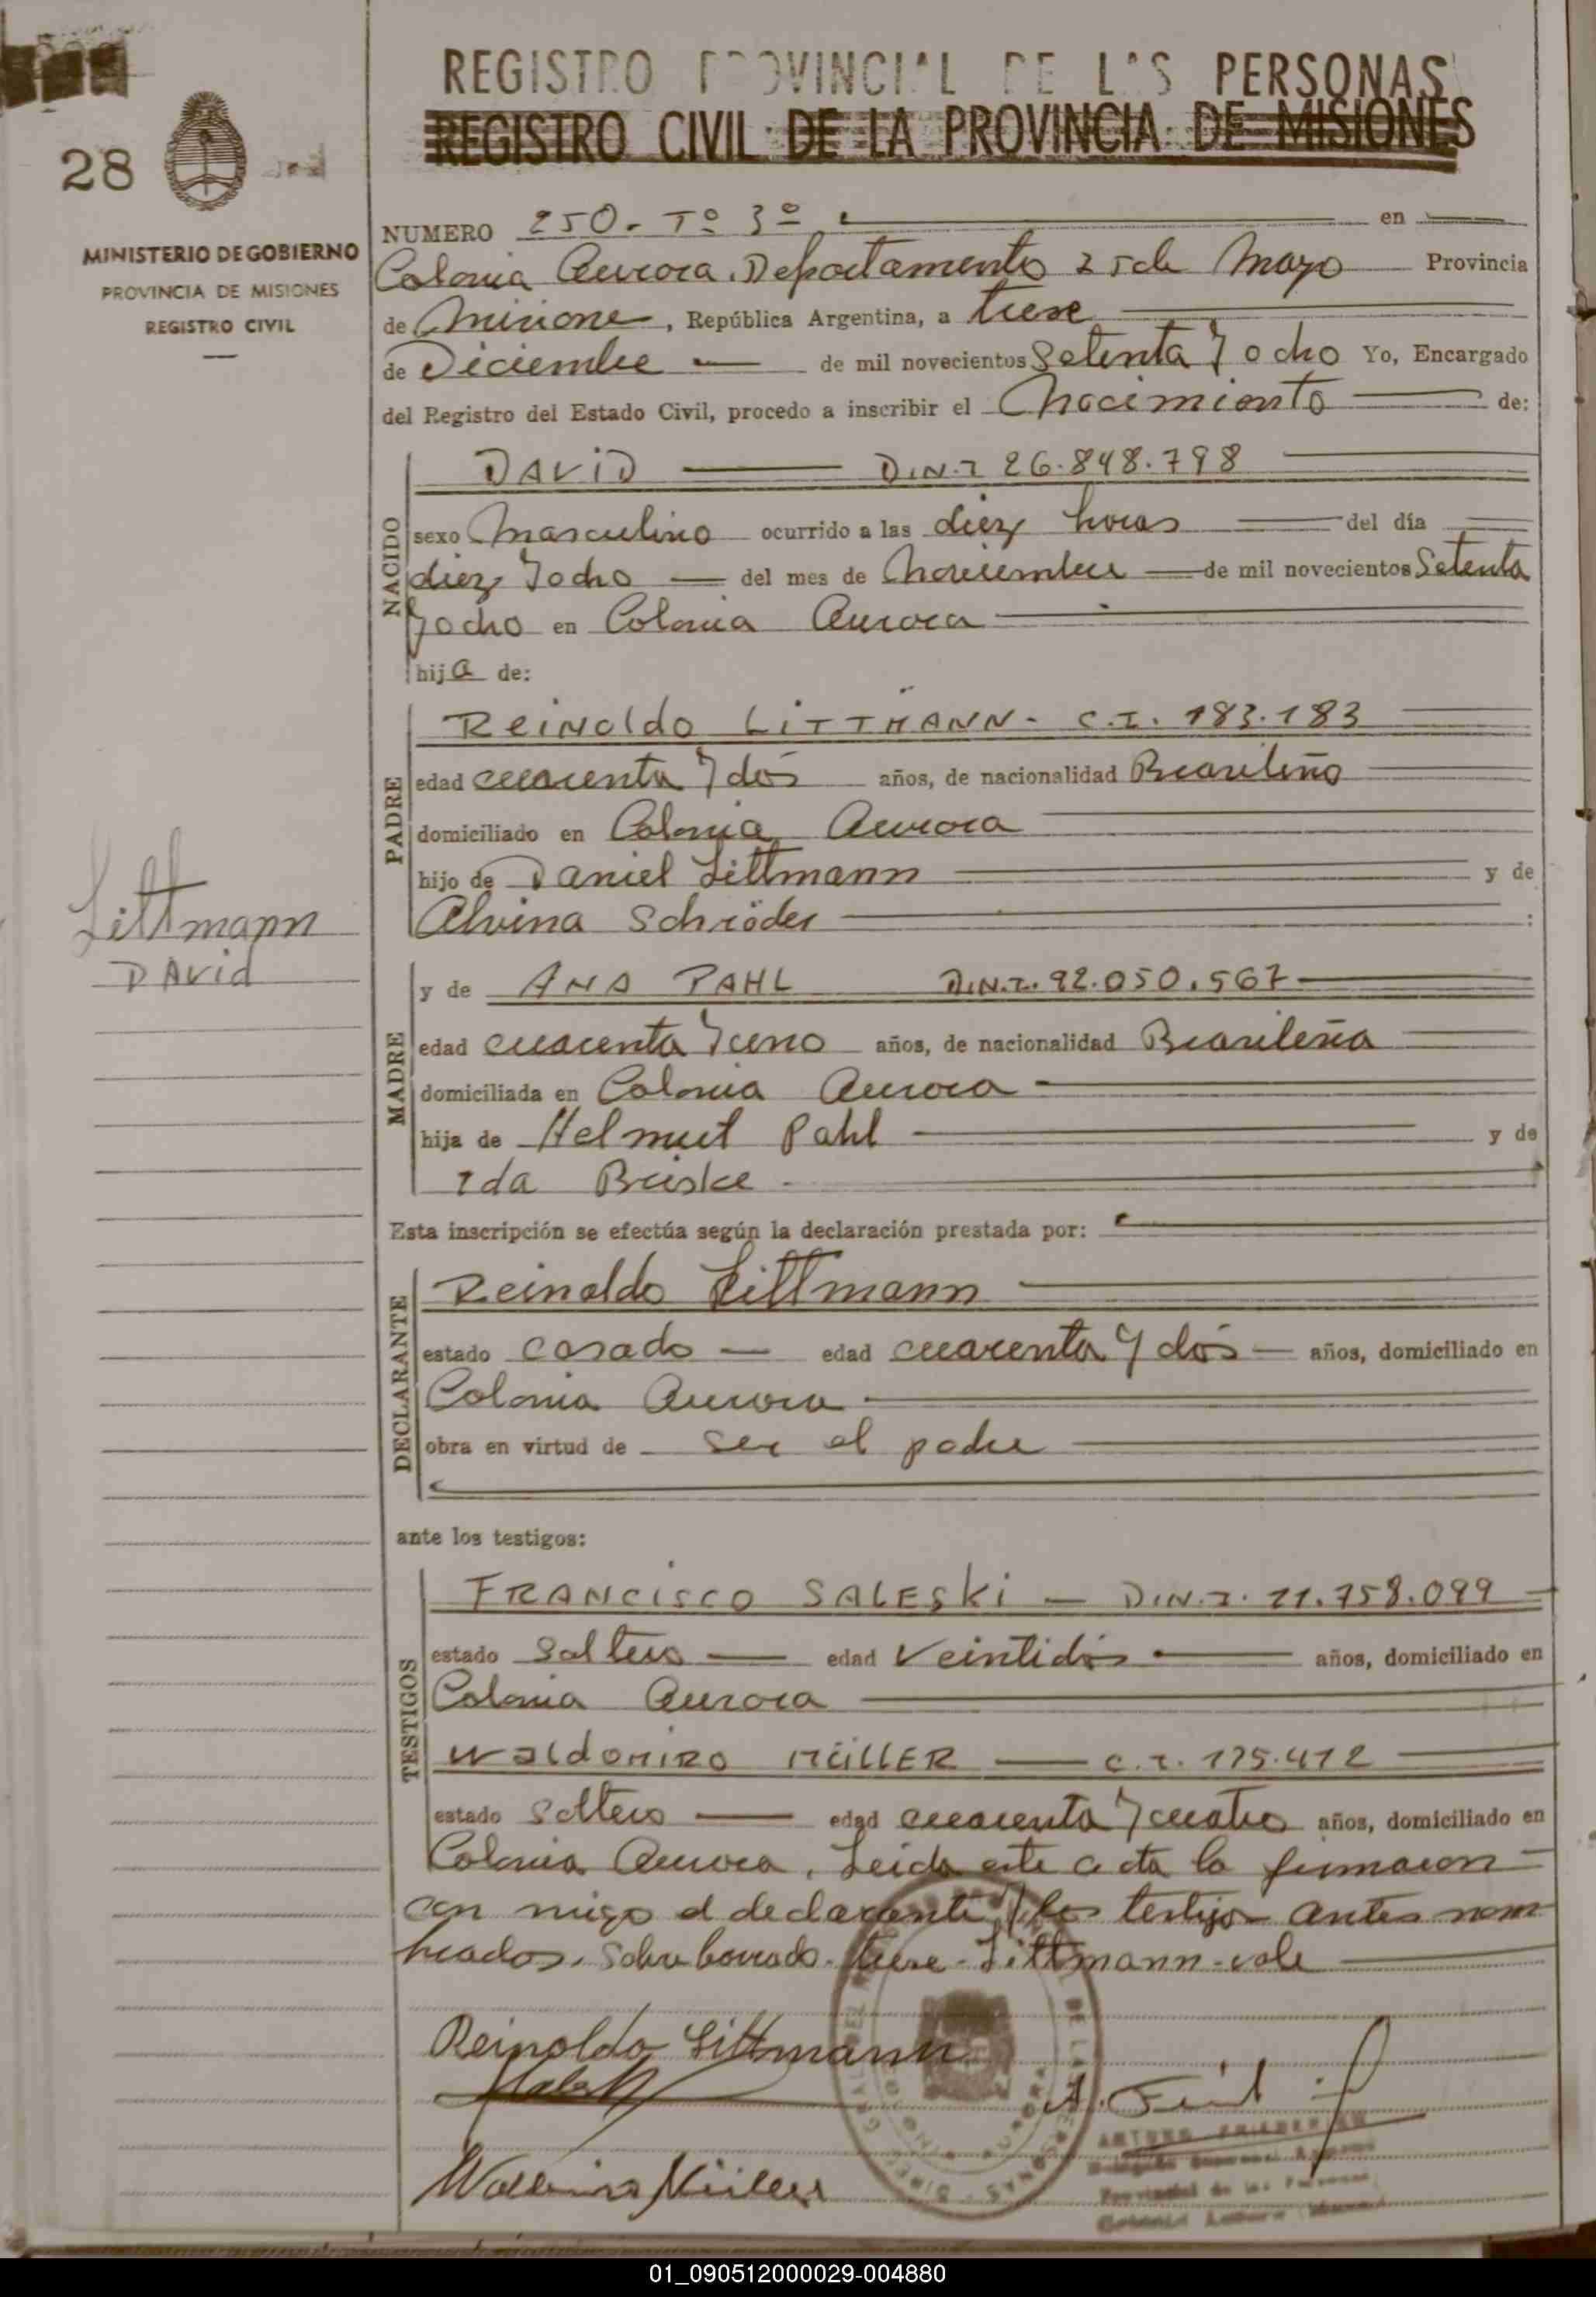 REGISTRO PROVINCIAL DE LAS PERSONAS
REGISTRO CIVIL DE LA PROVINCIA DE MISIONES
28
MINISTERIO DE GOBIERNO
PROVINCIA DE MISIONES
REGISTRO CIVIL
NUMERO 250 - Tº 3º en
Colonia Aurora. Departamento 25 de Mayo Provincia
de Misiones, República Argentina, a trece
de Diciembre de mil novecientos Setenta y ocho Yo, Encargado
del Registro del Estado Civil, procedo a inscribir el Nacimiento de:
NACIDO
DAViD D.N.I 26.848.798
sexo Masculino ocurrido a las diez horas del día
diez y ocho del mes de Noviembre de mil novecientos Setenta
y ocho en Colonia Aurora
hija de:
PADRE
Reinoldo LiTTMANN - C.I. 183.183
edad cuarenta y dós años, de nacionalidad Brasileño
domiciliado en Colonia Aurora
hijo de Daniel Littmann y de
Alvina Schröder :
Littmann
DAvid
MADRE
y de ANA PAHL D.N.I. 92.050.567
edad cuarenta y uno años, de nacionalidad Brasileña
domiciliada en Colonia Aurora
hija de Helmut Pahl y de
Ida Briske
Esta inscripción se efectúa según la declaración prestada por:
DECLARANTE
Reinoldo Littmann
estado casado edad cuarenta y dós años, domiciliado en
Colonia Aurora
obra en virtud de ser el padre
ante los testigos:
TESTIGOS
FRANCISCO SALESKi - D.N.I. 11.758.099
estado Soltero edad Veintidós años, domiciliado en
Colonia Aurora
WALDOMIRO MÜLLER C.I. 175.412
estado Soltero edad cuarenta y cuatro años, domiciliado en
Colonia Aurora. Leida este acta la firmaron
con migo el declarante y los testigos antes nom
brados. Sobre borrado - trece - Littmann - vale
Reinoldo Littmann
Müller
01_090512000029-004880